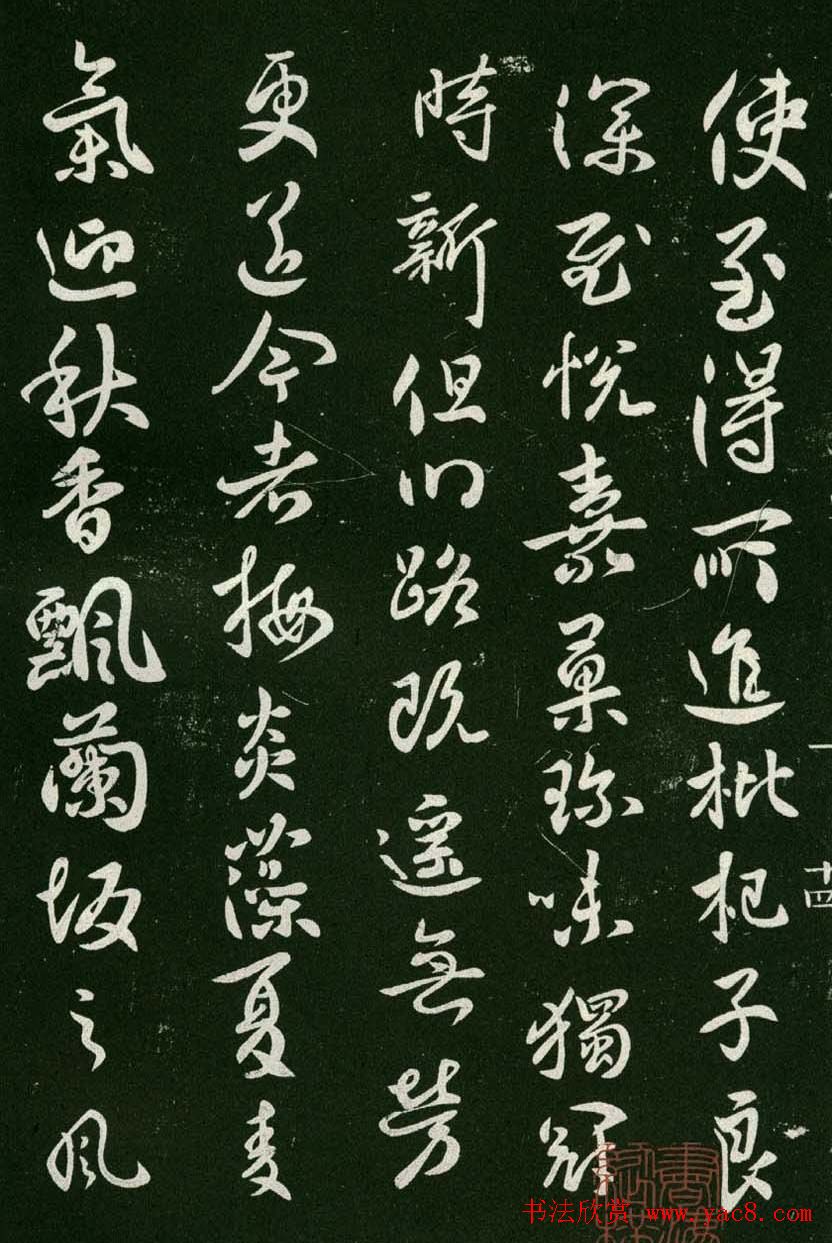 使至得所進枇杷子良
深慰悅嘉菓珍味獨冠
時新但川路既遥無勞
更送今者梅炎藻夏麦
氣迎秋香飄蘭坂之風
十四
书法欣赏 www.yac8.com